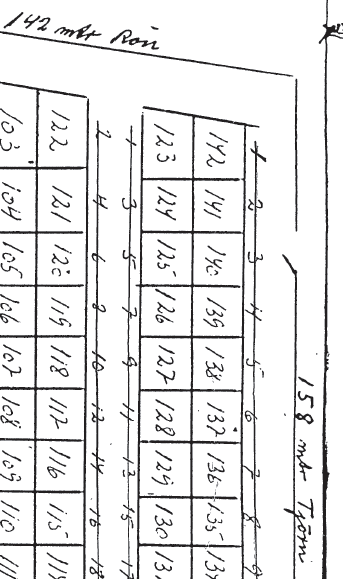 142 mtr Rön
158 mtr Tjörn
1 2 3 4 5 6 7 8 9
142 141 140 139 138 137 136 135
123 124 125 126 127 128 129 130
1 3 5 7 9 11 13 15 17
2 4 6 8 10 12 14 16 18
122 121 120 119 118 117 116 115
103 104 105 106 107 108 109 110